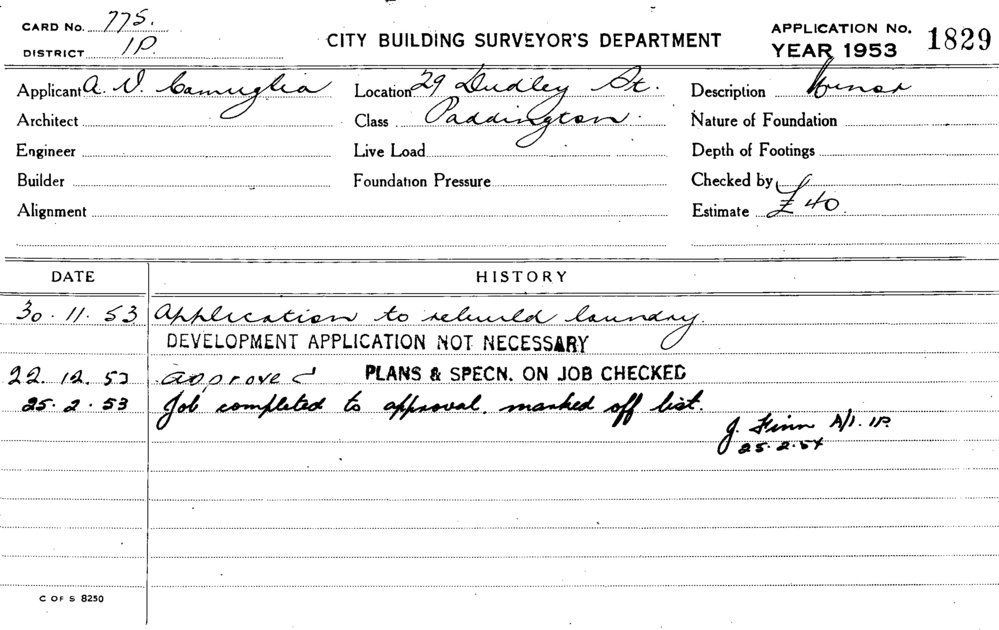 CARD No. 775.
DISTRICT 1P.
CITY BUILDING SURVEYOR'S DEPARTMENT
APPLICATION No. 1829
YEAR 1953
Applicant A. V. Camuglia Location 29 Dudley St. Description Minor
Architect Class Paddington. Nature of Foundation
Engineer Live Load Depth of Footings
Builder Foundation Pressure Checked by
Alignment Estimate £40.
DATE HISTORY
30.11.53 Application to rebuild laundry.
DEVELOPMENT APPLICATION NOT NECESSARY
22.12.53 approved PLANS & SPECN. ON JOB CHECKED
25.2.53 Job completed to approval. marked off list.
J. Finn A/1. 1P.
25.2.54
C OF S 8250